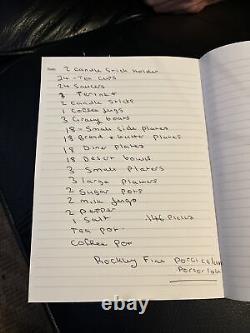 2 Candle Stick Holder
24 - Tea Cups
24 Saucers
2 Candle Sticks
1 Coffee Jugs
3 Gravy boats
18 - Small Side Plates
18 Bread + butter Plates
18 Diner Plates
18 Desert bowls
3 Small Platers
3 large Platers
2 Sugar Pots
2 milk Jugs
2 Pepper
1 Salt 146 Pieces
Tea Pot
Coffee Pot
Rockley Fine